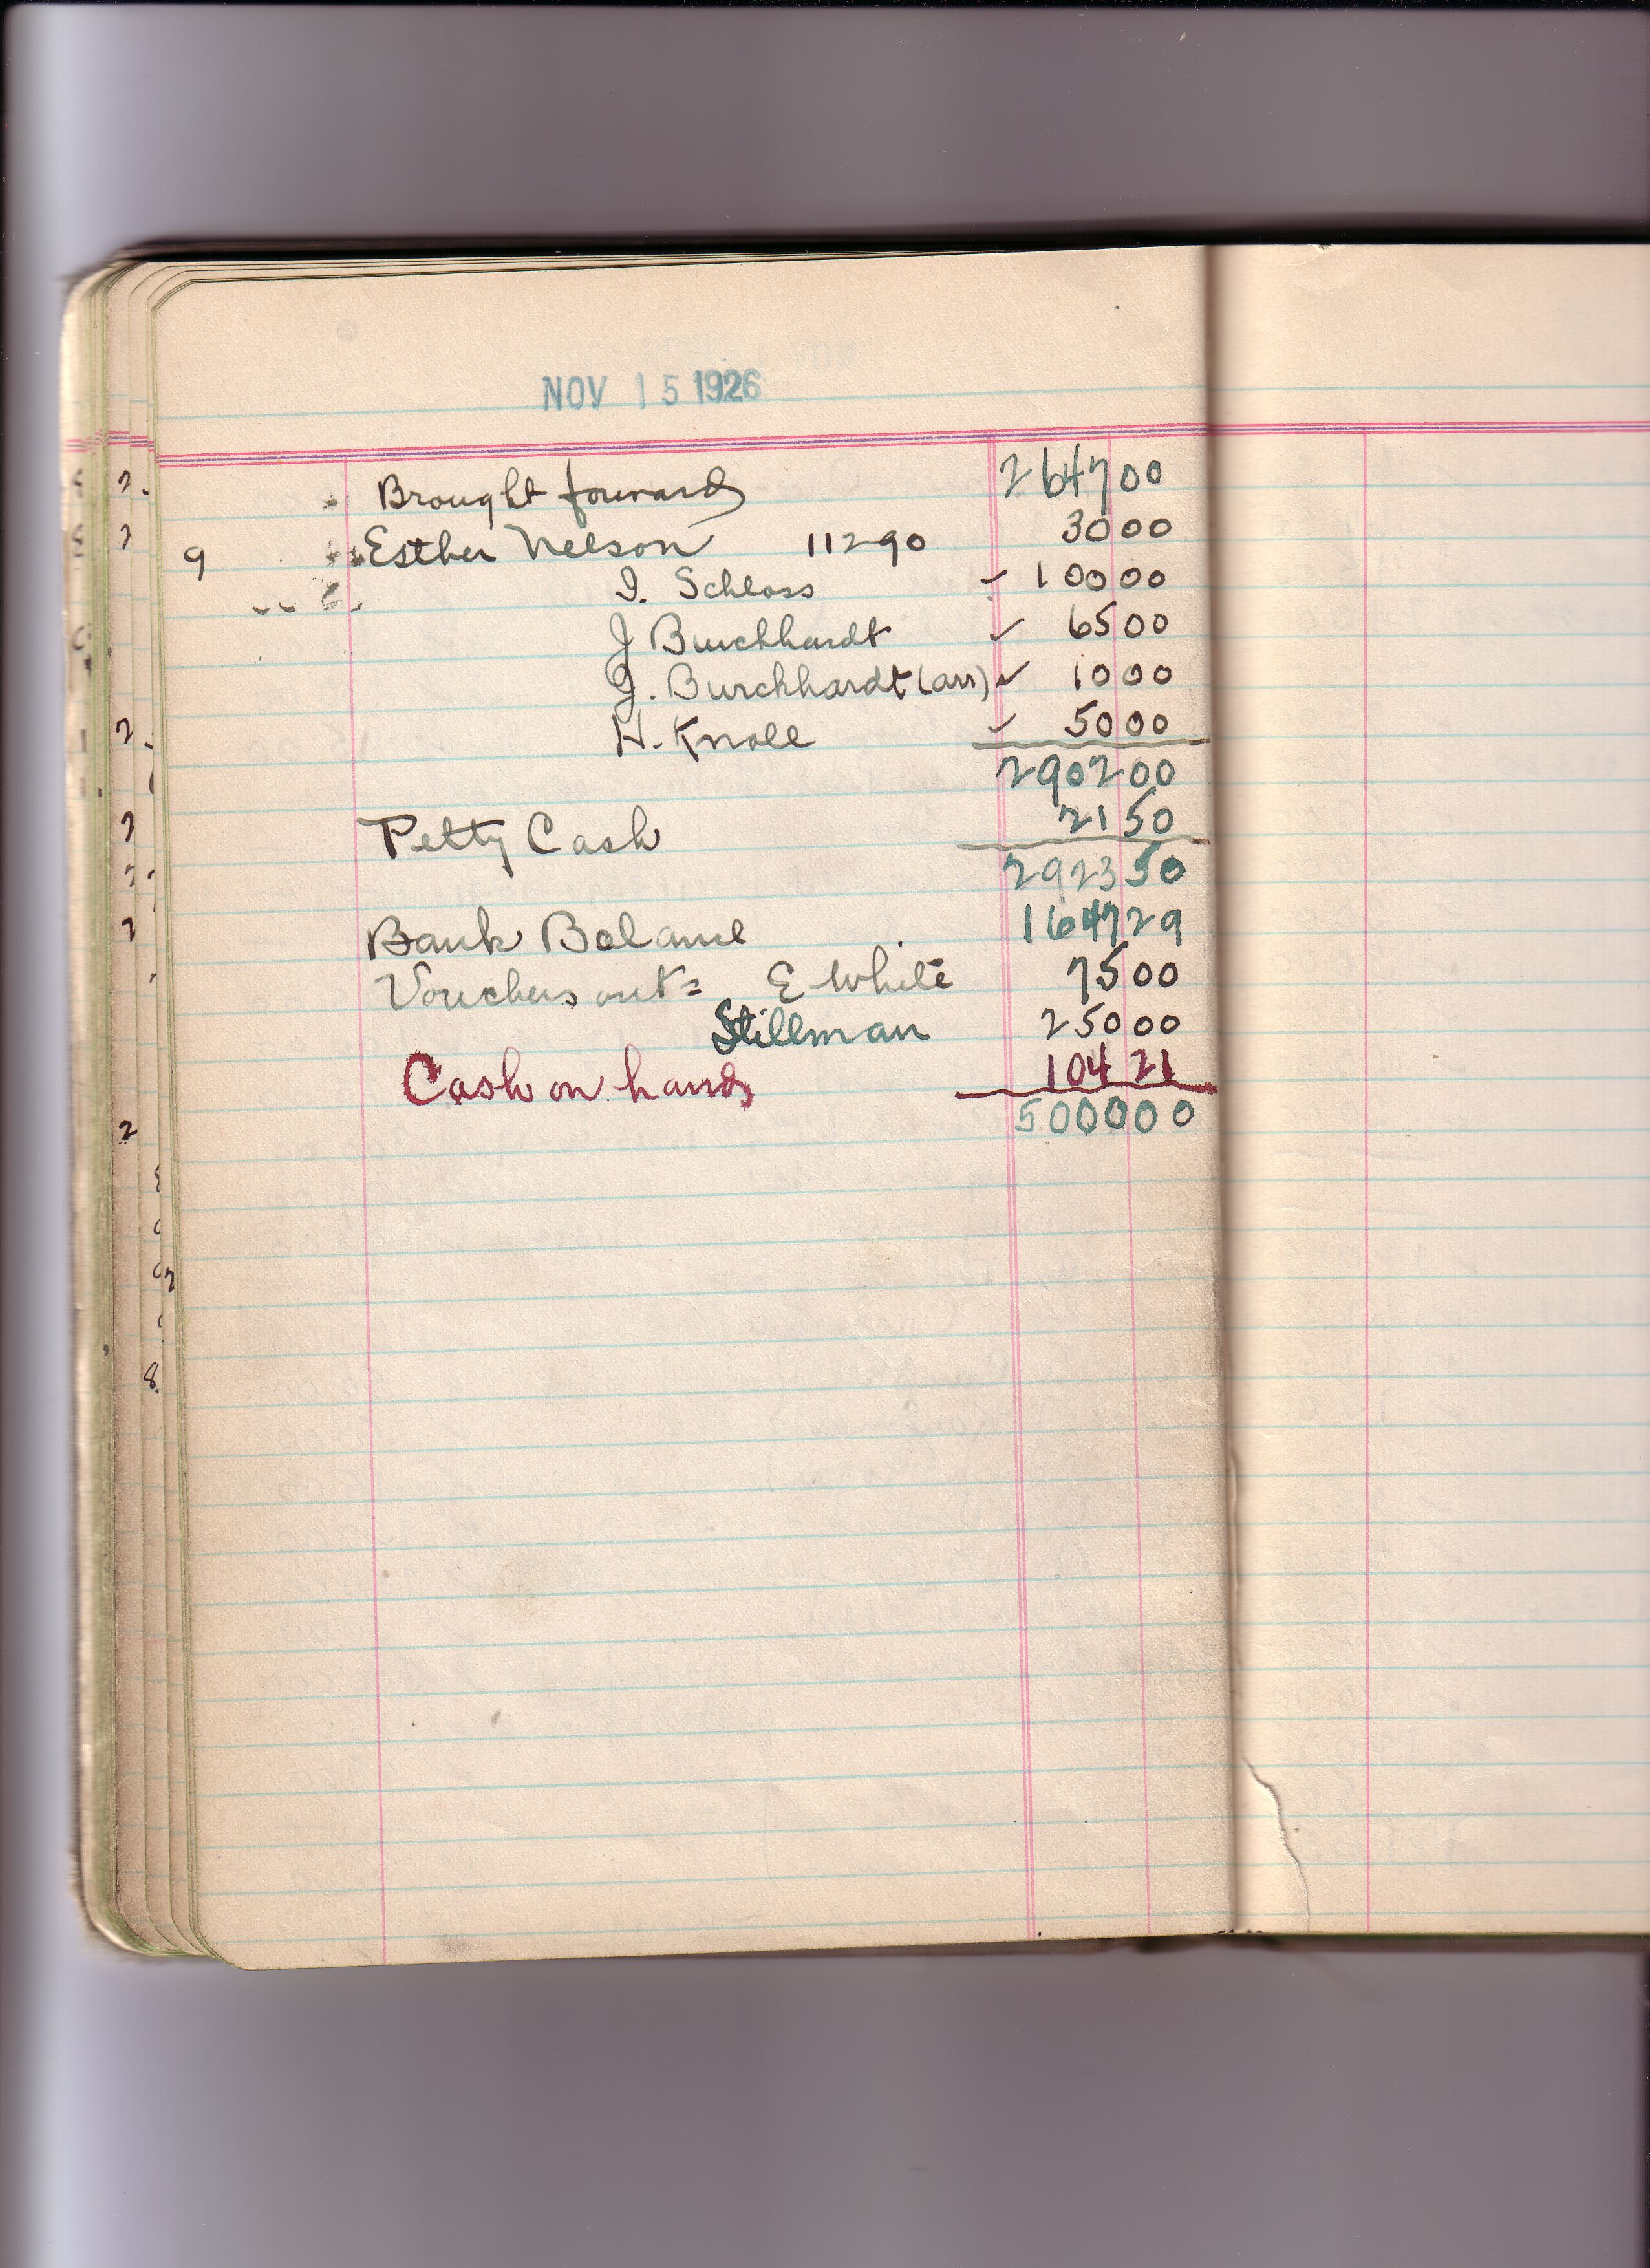 NOV 15 1926
Brought forward 2647 00
9 Esther Nelson 11290 30 00
I. Schloss ✓ 100 00
J Burchhardt ✓ 65 00
J. Burchhardt (arr) ✓ 10 00
H. Knoll ✓ 50 00
2902 00
Petty Cash 21 50
2923 50
Bank Balance 1647 29
Vouchers out = E White 75 00
Stillman 250 00
Cash on hand 104 21
5000 00